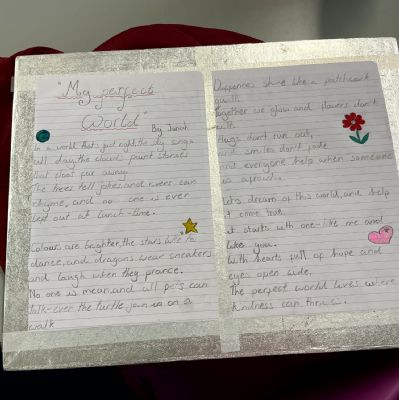 "My perfect
World"
By Janah
In a world that's just right, the sky sings
all day, the clouds paint stories
that float far away.
The trees tell jokes, and rivers can
rhyme, and no one is ever
left out at lunch-time.
Colours are brighter, the stars love to
dance, and dragons wear sneakers
and laugh when they prance.
No one is mean, and all pets can
talk-even the turtle join us on a
walk
Differences shine like a patchwork
quilt,
together we glow and flowers don't
wilt.
Hugs don't run out,
and smiles don't fade
and everyone help when someone
is afraid.
Let's dream of this world, and help
it come true.
it starts with one-like me and
like you.
With hearts full of hope and
eyes open wide,
The perfect world lives where
kindness can thrive.